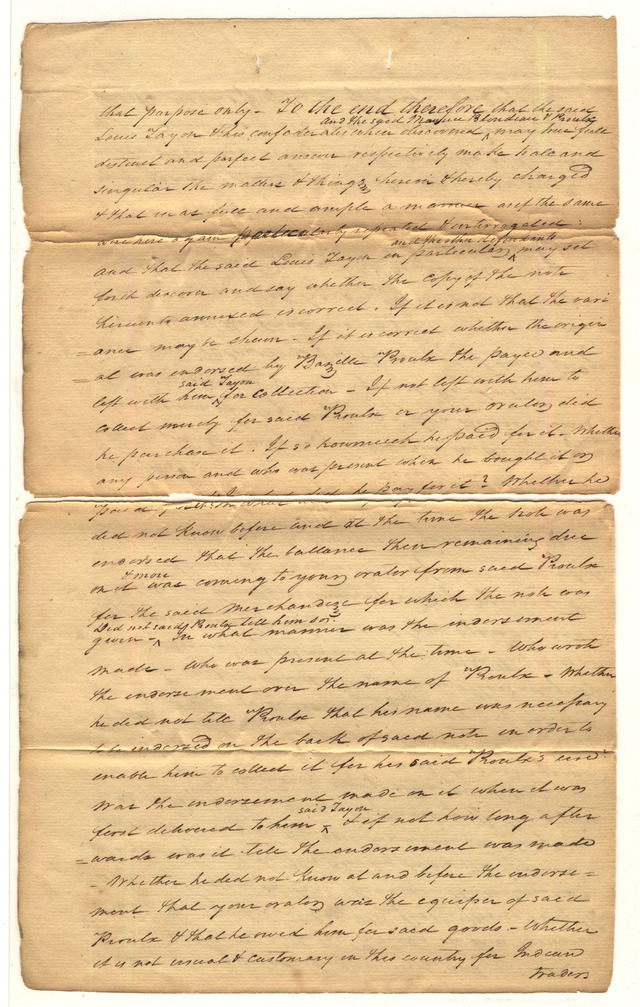 that purpose only - To the end therefore that the said
and the said Maurice Blondeau & Proulx
Louis Tayon & his confederates when discovered ^ may true full
distinct and perfect answer respectively make to all and
singular the matters & things herein & hereby charged
& that in as full and ample a manner as if the same
was here again particularly repeated & interrogated.
and the other defendants
and that the said Louis Tayon in particular, ^ may set
forth discover and say whether the copy of the note
hereunto annexed is correct. If it is not that the vari
=ance may be shewn. If it is correct whether the origin
=al was endorsed by Bazille Proulx the payee and
said Tayon
left with him ^ for collection - If not left with him to
collect merely for said Proulx or your orator, did
he purchase it. If so how much he paid for it - Whether
any person and who was present when he bought it or
what did he pay for it? Whether he
did not know before and at the time the note was
endorsed that the ballance then remaining due
& more
on it was coming to your orator from said Proulx
for the said merchandize for which the note was
Did not said Proulx tell him so?
given - ^ In what manner was the endorsement
made - Who was present at the time - Who wrote
the endorsement over the name of Proulx - Whether
he did not tell Proulx that his name was necessary
to be indorsed on the back of said note in order to
enable him to collect it for his said Proulx's use?
Was the endorsement made on it when it was
said Tayon
first delivered to him ^ & if not how long after
=wards was it till the endorsement was made
- Whether he did not know at and before the endorse=
ment that your orator was the equiper of said
Proulx & that he owed him for said goods - Whether
it is not usual & customary in this country for Indian
traders